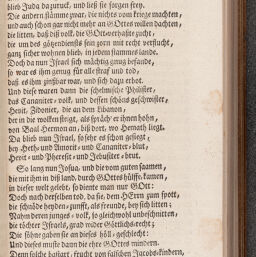 blieb Juda dazuruck, und ließ sie sorgen frey.
Die andern stämme zwar, die nichts vom kriege machten,
und auch schon gar nicht mehr an GOttes willen dachten,
die litten, daß diß volk, die GOtt verhaßte zucht,
die um des götzendiensts sein zorn mit recht verflucht,
ganz sicher wohnen blieb, in jedem stammes lande.
Doch da nun Israel sich mächtig gnug befande,
so war es ihm genug für alle straf und tod,
daß es ihm zinsbar war, und sich dazu erbot.
Und diese waren dann die schelmische Philister,
das Cananiter-volk, und dessen schöns geschwister,
Hevit, Zidonier, die an dem Libanon,
der in die wolken steigt, als spräch' er ihnen hohn,
von Baal Hermon an, biß dort, wo Hemath liegt.
Da blieb nun Israel, so sehr es schon gesiegt,
bey Heth- und Amorit- und Cananiter-blut,
Hevit- und Pheresit- und Jebusiter-brut.
So lang nun Josua, und die vom guten saamen,
die mit ihm in diß land, durch GOttes hülffe, kamen,
in dieser welt gelebt, so diente man nur GOtt:
Doch nach derselben tod, da sie, dem HErrn zum spott,
die schnöde heyden-zunft, als freunde, bey sich litten,
Nahm deren junges-volk, so gleichwohl unbeschnitten,
die töchter Israels, grad wider Göttlichs recht;
Die söhne gaben sie an dieses höll-geschlecht:
Und dieses muste dann die ehre GOttes mindern.
Denn solche bastart-frucht von falschen Jacobs-kindern,